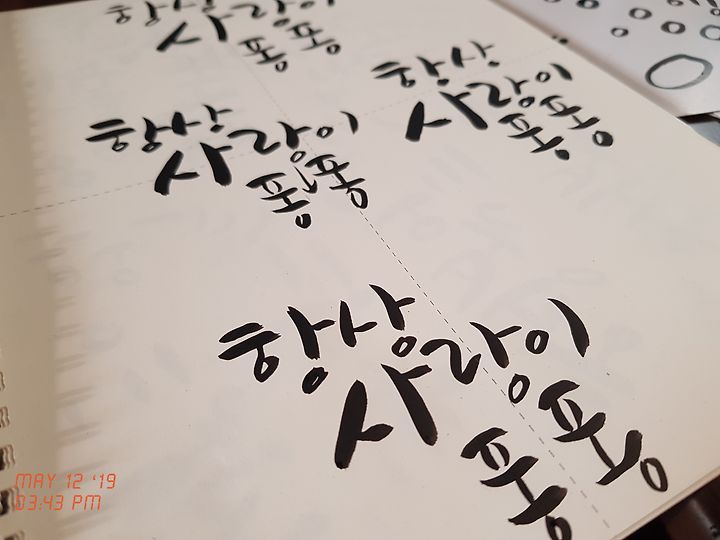 항상
사랑이
퐁퐁
항상
사랑이
퐁퐁
항상
사랑이
퐁퐁
항상
사랑이
퐁퐁
MAY 12 '19
03:43 PM